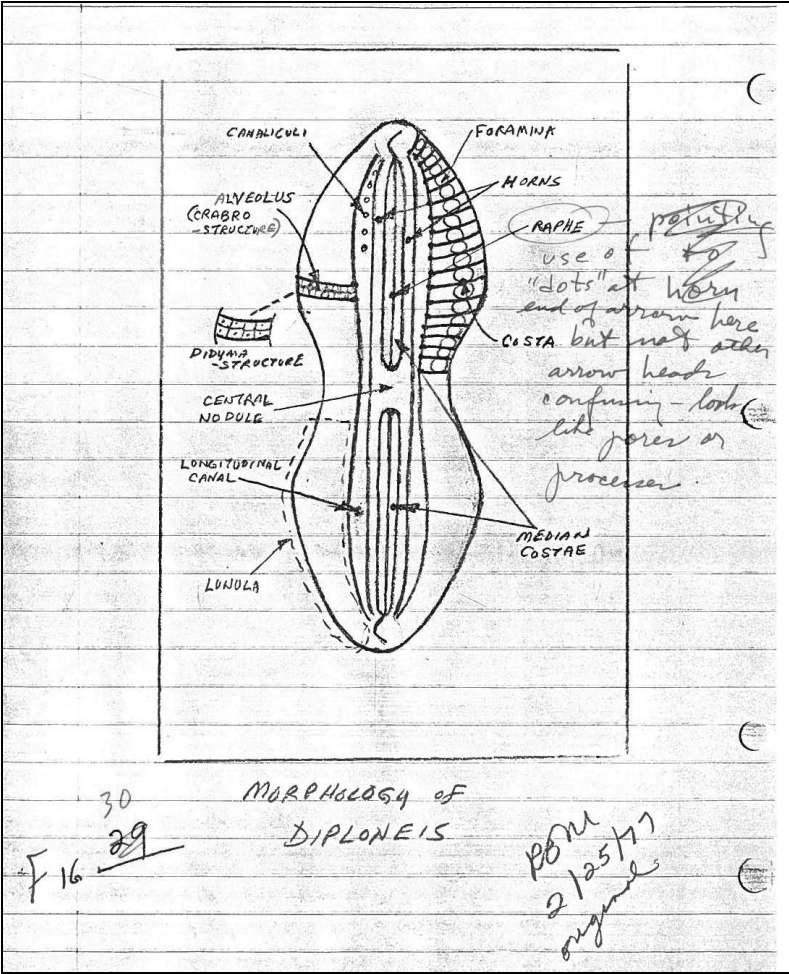 CANALICULI
FORAMINA
HORNS
ALVEOLUS
(CRABRO
-STRUCTURE)
RAPHE
pointing
use of to
"dots" at horn
end of arrow here
but not other
arrow heads
confusing - look
like pores or
processes.
COSTA
DIDYMA
-STRUCTURE
CENTRAL
NODULE
LONGITUDINAL
CANAL
MEDIAN
COSTAE
LUNULA
MORPHOLOGY of
DIPLONEIS
30
29
F 16
2/25/77
original